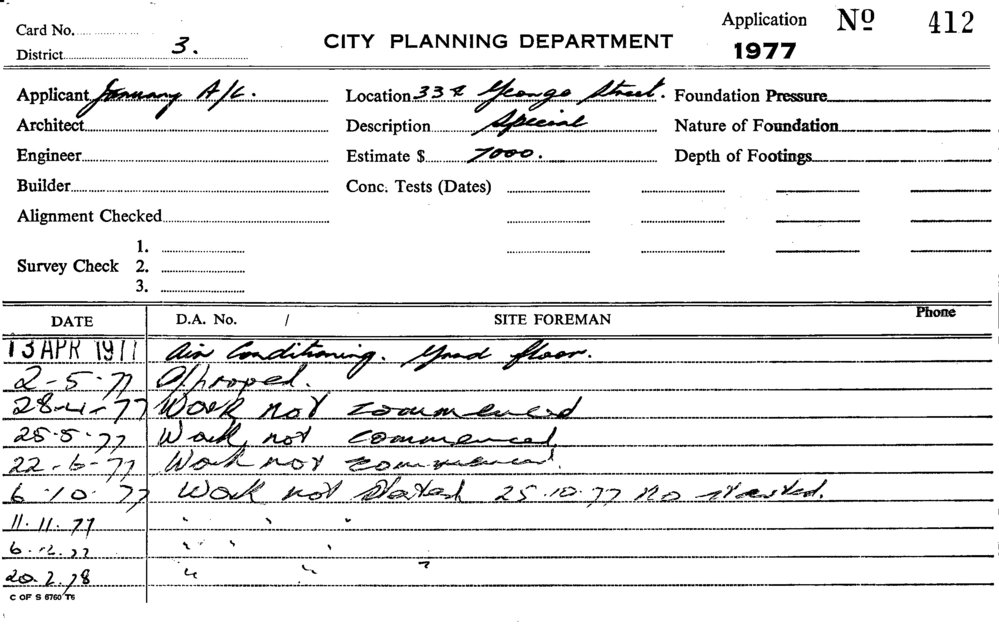 Card No.
Application Nº 412
District 3.
CITY PLANNING DEPARTMENT
1977
Applicant January A/C.
Location 338 George Street.
Foundation Pressure
Architect
Description Special
Nature of Foundation
Engineer
Estimate $ 7000.
Depth of Footings
Builder
Conc. Tests (Dates)
Alignment Checked
1.
Survey Check 2.
3.
DATE
D.A. No. /
SITE FOREMAN
Phone
13 APR 1977 Air Conditioning. Grnd floor.
2-5-77 Approved.
28-4-77 Work not commenced
25-5-77 Work not commenced
22-6-77 Work not commenced.
6.10.77 Work not started 25.10.77 no started.
11.11.77 " " "
6.12.77 " " "
20.2.78 " " "
C OF S 6760 T6